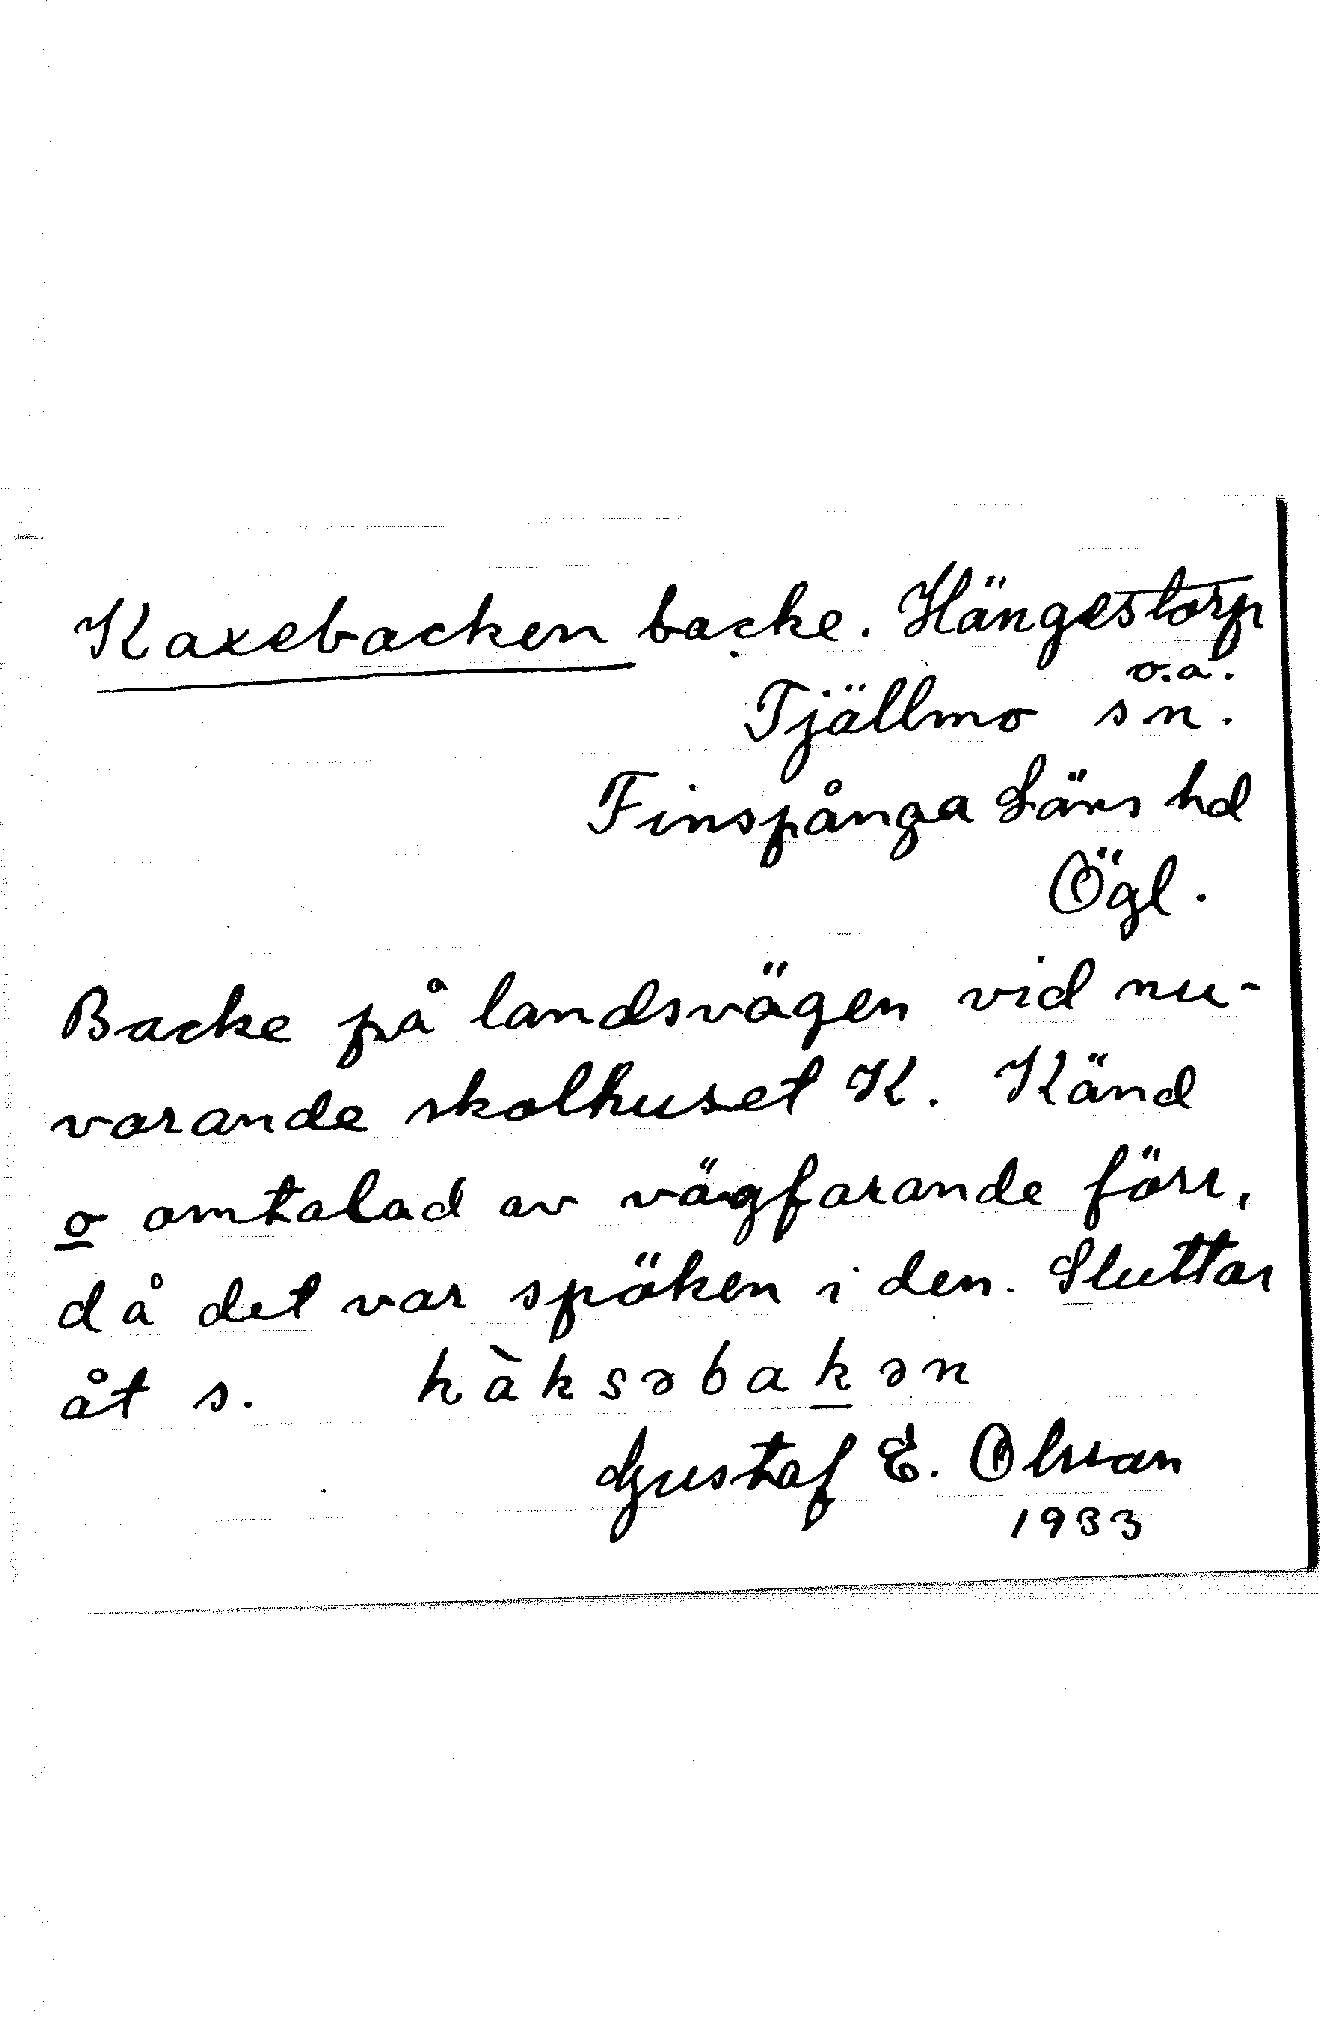 Kaxebacken backe. Hängestorp
o.a.
Tjällmo sn.
Finspånga Läns hd
Ögl.
Backe på landsvägen vid nu-
varande skolhuset K. Känd
o omtalad av vägfarande förr,
då det var spöken i den. Sluttar
åt s. kàksəbakən
Gustaf E. Olsson
1933